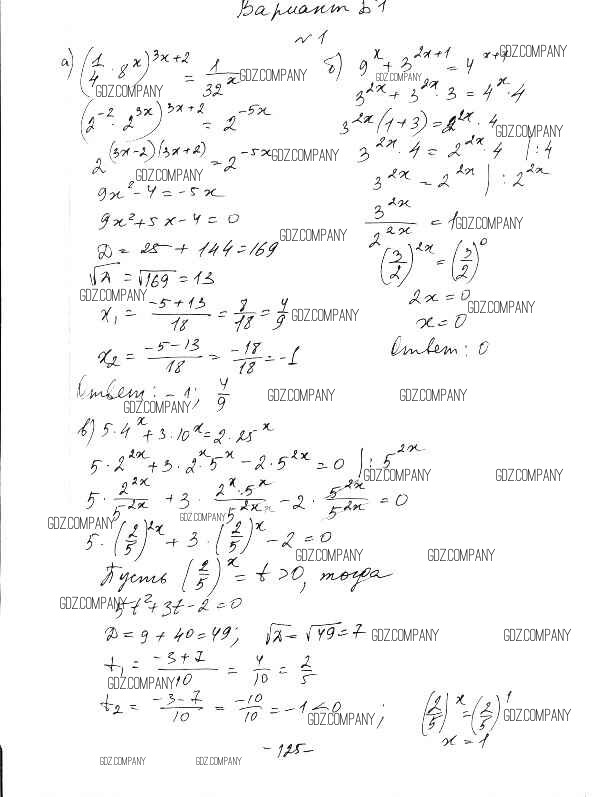 Вариант Б1
№1
а) (1/4 · 8^x)^(3x+2) = 1/32^x
(2^(-2) · 2^(3x))^(3x+2) = 2^(-5x)
2^((3x-2)(3x+2)) = 2^(-5x)
9x² - 4 = -5x
9x² + 5x - 4 = 0
D = 25 + 144 = 169
√D = √169 = 13
x₁ = (-5+13)/18 = 8/18 = 4/9
x₂ = (-5-13)/18 = -18/18 = -1
Ответ: -1; 4/9
б) 9^x + 3^(2x+1) = 4^(x+
3^(2x) + 3^(2x) · 3 = 4^x · 4
3^(2x)(1+3) = 2^(2x) · 4
3^(2x) · 4 = 2^(2x) · 4 | : 4
3^(2x) = 2^(2x) | : 2^(2x)
3^(2x)/2^(2x) = 1
(3/2)^(2x) = (3/2)^0
2x = 0
x = 0
Ответ: 0
в) 5·4^x + 3·10^x = 2·25^x
5·2^(2x) + 3·2^x·5^x - 2·5^(2x) = 0 | : 5^(2x)
5 · 2^(2x)/5^(2x) + 3 · 2^x·5^x/5^(2x) - 2 · 5^(2x)/5^(2x) = 0
5·(2/5)^(2x) + 3·(2/5)^x - 2 = 0
Пусть (2/5)^x = t > 0, тогда
5t² + 3t - 2 = 0
D = 9 + 40 = 49; √D = √49 = 7
t₁ = (-3+7)/10 = 4/10 = 2/5
t₂ = (-3-7)/10 = -10/10 = -1 < 0 ; (2/5)^x = (2/5)^1
x = 1
- 125 -
GDZ.COMPANY